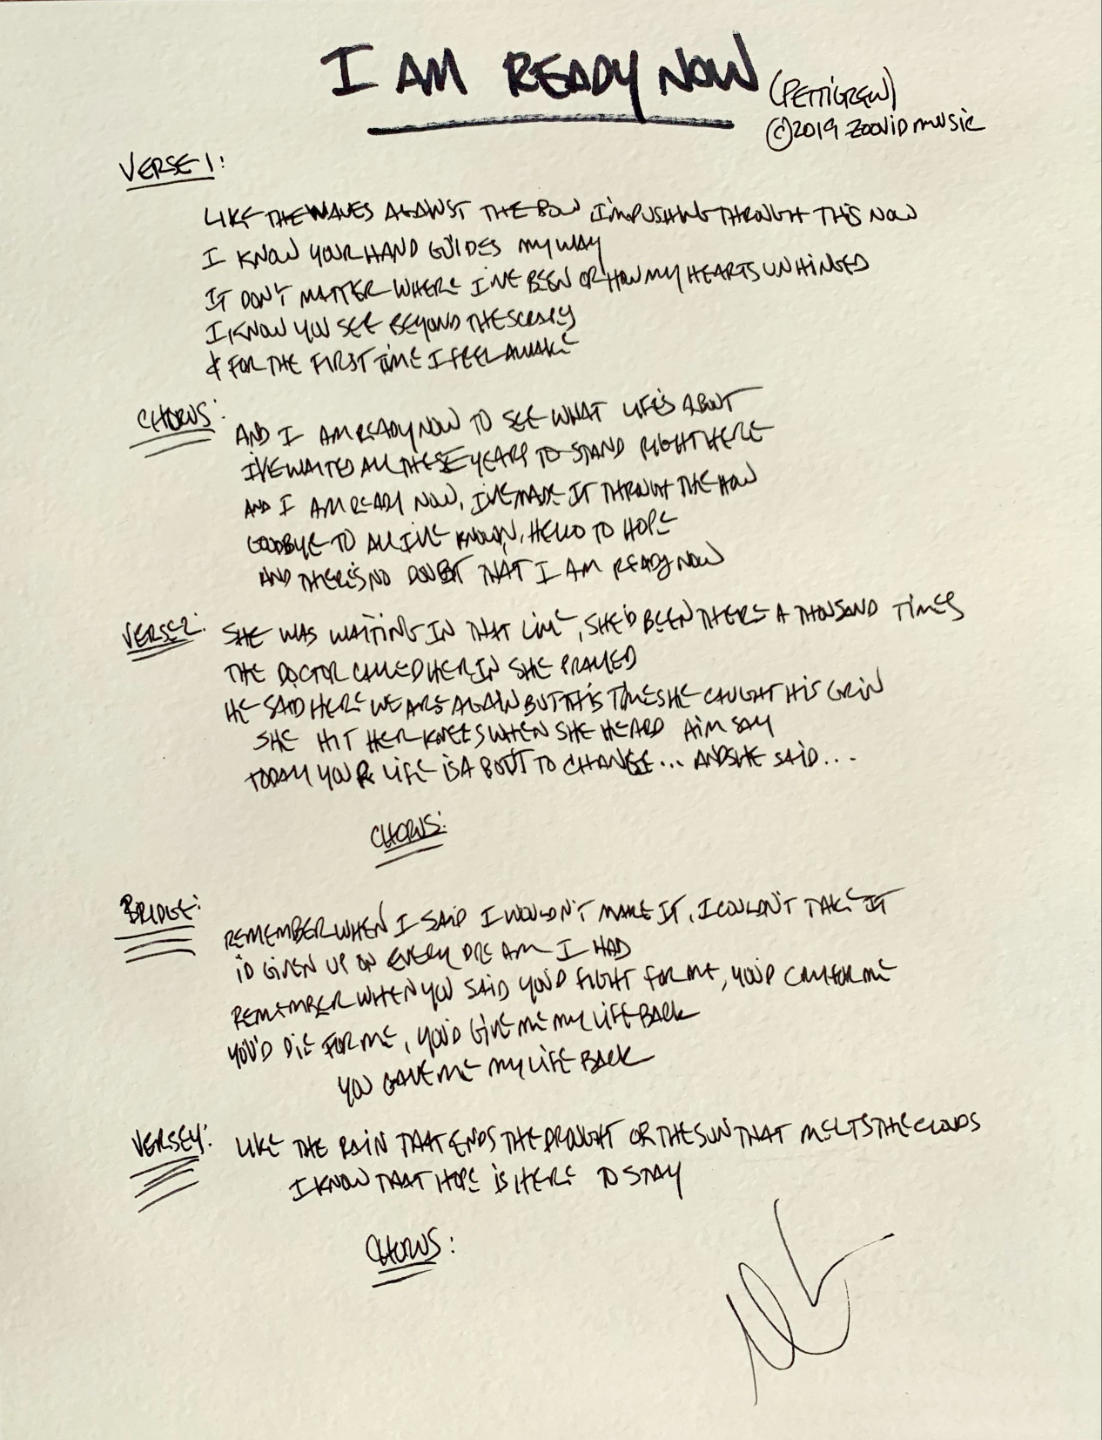 I AM READY NOW
(PETTIGREW)
©2019 ZOOVID MUSIC
VERSE 1:
LIKE THE WAVES AGAINST THE BOW I'M PUSHING THROUGH THIS NOW
I KNOW YOUR HAND GUIDES MY WAY
IT DON'T MATTER WHERE I'VE BEEN OR HOW MY HEARTS UNHINGED
I KNOW YOU SEE BEYOND THE
& FOR THE FIRST TIME I FEEL AWAKE
CHORUS:
AND I AM READY NOW TO SEE WHAT LIFE'S ABOUT
I'VE WAITED ALL THESE YEARS TO STAND RIGHT HERE
AND I AM READY NOW, I'VE MADE IT THROUGH THE HOW
GOODBYE TO ALL I'VE KNOWN, HELLO TO HOPE
AND THERE'S NO DOUBT THAT I AM READY NOW
VERSE 2:
SHE WAS WAITING IN THAT LINE, SHE'D BEEN THERE A THOUSAND TIMES
THE DOCTOR CALLED HER IN SHE PRAYED
HE SAID HERE WE ARE AGAIN BUT THIS TIME SHE CAUGHT HIS GRIN
SHE HIT HER KNEES WHEN SHE HEARD HIM SAY
TODAY YOUR LIFE IS ABOUT TO CHANGE... AND SHE SAID...
CHORUS:
BRIDGE:
REMEMBER WHEN I SAID I WOULDN'T MAKE IT, I COULDN'T TAKE IT
I'D GIVEN UP ON EVERY DREAM I HAD
REMEMBER WHEN YOU SAID YOU'D FIGHT FOR ME, YOU'D CRY FOR ME
YOU'D DIE FOR ME, YOU'D GIVE ME MY LIFE BACK
YOU GAVE ME MY LIFE BACK
VERSE 4:
LIKE THE RAIN THAT ENDS THE DROUGHT OR THE SUN THAT MELTS THE CLOUDS
I KNOW THAT HOPE IS HERE TO STAY
CHORUS: